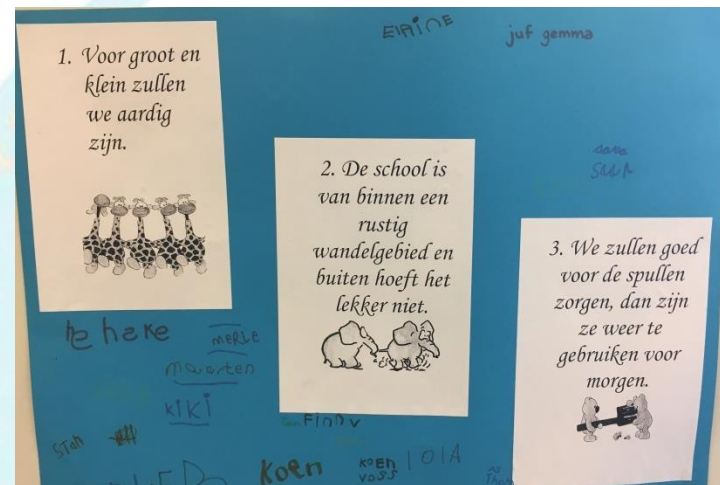 1. Voor groot en
klein zullen
we aardig
zijn.
2. De school is
van binnen een
rustig
wandelgebied en
buiten hoeft het
lekker niet.
3. We zullen goed
voor de spullen
zorgen, dan zijn
ze weer te
gebruiken voor
morgen.
ElAiNE
juf gemma
MERLE
maarten
kiKi
STaN
FINN V
Koen
KOEN
VOSS